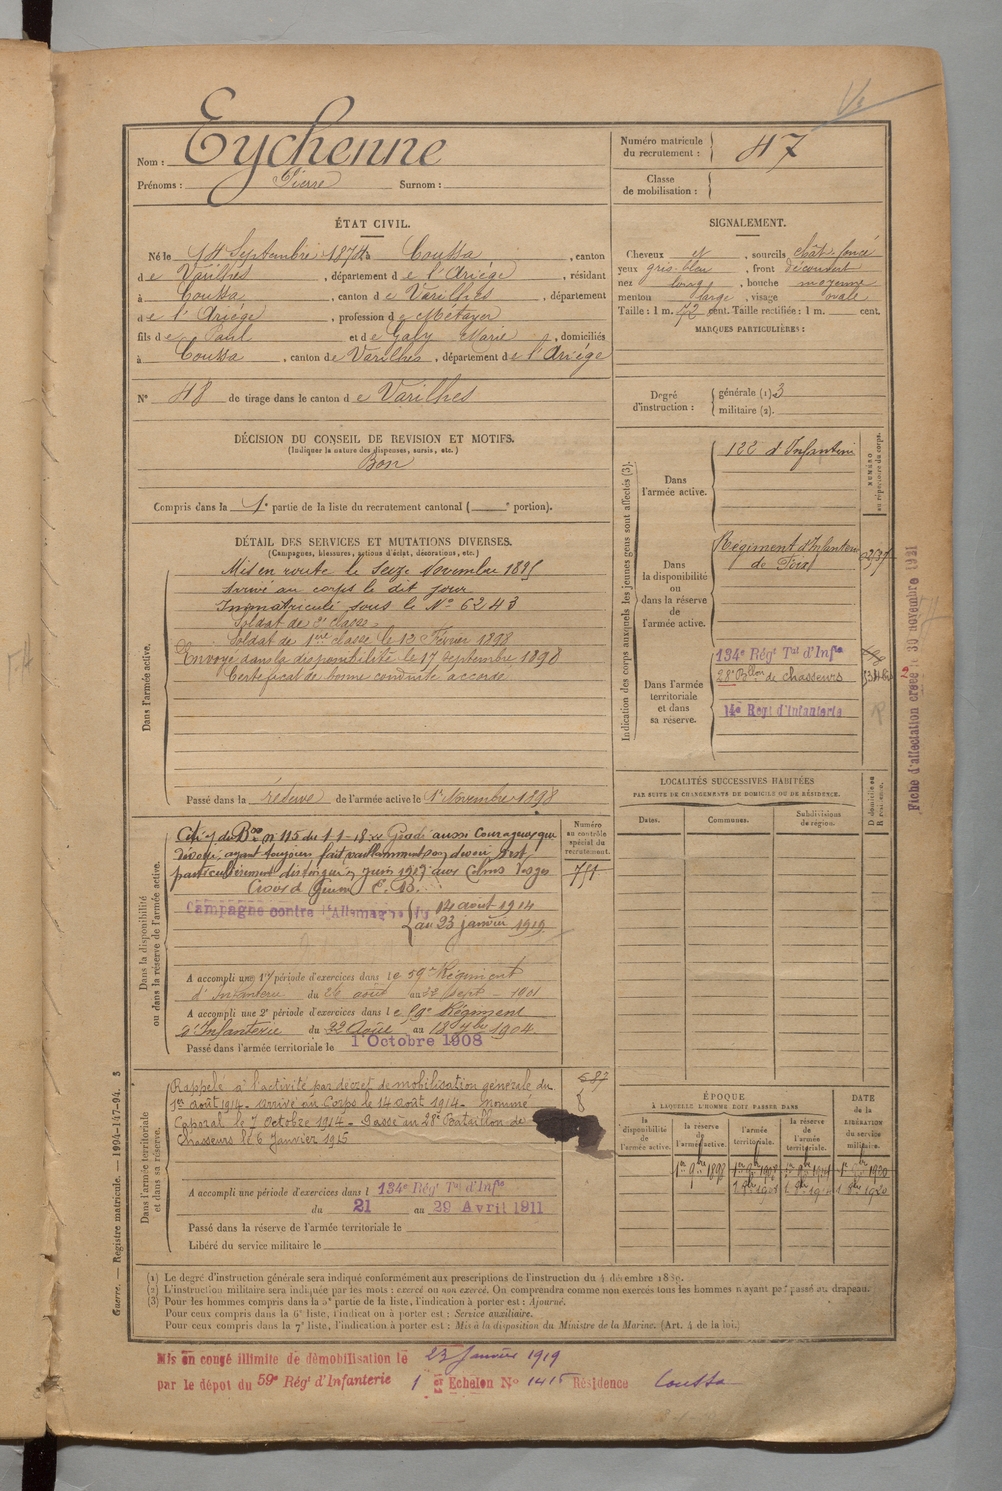 Nom : Eychenne
Prénoms : Pierre Surnom :
Numéro matricule du recrutement : 47
Classe de mobilisation :
ÉTAT CIVIL.
Né le 14 Septembre 1874 à Coussa, canton
de Varilhes, département de l'Ariège, résidant
à Coussa, canton de Varilhes, département
de l'Ariège, profession de Métayer
fils de Paul et de Galy Marie, domiciliés
à Coussa, canton de Varilhes, département de l'Ariège
N° 48 de tirage dans le canton de Varilhes
SIGNALEMENT.
Cheveux et, sourcils chât. foncé
yeux gris bleu, front découvert
nez long, bouche moyenne
menton large, visage ovale
Taille : 1 m. 72 cent. Taille rectifiée : 1 m. cent.
MARQUES PARTICULIÈRES :
Degré d'instruction : générale (1). 3
militaire (2).
DÉCISION DU CONSEIL DE REVISION ET MOTIFS.
(Indiquer la nature des dispenses, sursis, etc.)
Bon
Compris dans la 1e partie de la liste du recrutement cantonal ( e portion).
DÉTAIL DES SERVICES ET MUTATIONS DIVERSES.
(Campagnes, blessures, actions d'éclat, décorations, etc.)
Dans l'armée active.
Mis en route le seize Novembre 1895
Arrivé au corps le dit jour.
Immatriculé sous le N° 6243
Soldat de 2e classe
Soldat de 1ère classe le 13 Février 1898
Envoyé dans la disponibilité le 17 septembre 1898
Certificat de bonne conduite accordé
Passé dans la réserve de l'armée active le 1er Novembre 1898
Indication des corps auxquels les jeunes gens sont affectés (3).
NUMÉRO au répertoire du corps.
Dans l'armée active.
122 d'Infanterie
Dans la disponibilité ou dans la réserve de l'armée active.
Régiment d'Infanterie
de Foix
Dans l'armée territoriale et dans sa réserve.
134e Régt Tal d'Infie
28e Bllon de chasseurs
14e Regt d'infanterie
Fiche d'affectation créée le 30 novembre 1921
LOCALITÉS SUCCESSIVES HABITÉES
PAR SUITE DE CHANGEMENTS DE DOMICILE OU DE RÉSIDENCE.
Dates. Communes. Subdivisions de région. D domicile ou R résidence.
Dans la disponibilité ou dans la réserve de l'armée active.
Numéro au contrôle spécial du recrutement.
751
Cité du Bon n° 115 du 1-1-18 Gradé aussi courageux que
dévoué, ayant toujours fait vaillamment son devoir, s'est
particulièrement distingué en juin 1917 aux Vosges
Croix de Guerre E. B.
Campagne contre l'Allemagne du 14 août 1914
au 23 janvier 1919
A accompli une 1re période d'exercices dans le 59e Régiment
d'Infanterie du 26 août au 22 sept. 1901
A accompli une 2e période d'exercices dans le 59e Régiment
d'Infanterie du 22 Août au 18 7bre 1904
Passé dans l'armée territoriale le 1 Octobre 1908
Dans l'armée territoriale et dans sa réserve.
587
Rappelé à l'activité par décret de mobilisation générale du
1er août 1914. Arrivé au Corps le 14 août 1914. Nommé
Caporal le 7 octobre 1914. Passé au 28e Bataillon de
Chasseurs le 6 janvier 1915
A accompli une période d'exercices dans l 134e Régt Tal d'Infie
du 21 au 29 Avril 1911
Passé dans la réserve de l'armée territoriale le
Libéré du service militaire le
ÉPOQUE
À LAQUELLE L'HOMME DOIT PASSER DANS
la disponibilité de l'armée active. la réserve de l'armée active. l'armée territoriale. la réserve de l'armée territoriale.
DATE de la LIBÉRATION du service militaire.
1er 9bre 1898 1er 9bre 1908 1er 9bre 1914 1er 9bre 1920
1 8bre 1908 1 8bre 1914 1 8bre 1920
(1) Le degré d'instruction générale sera indiqué conformément aux prescriptions de l'instruction du 4 décembre 1889.
(2) L'instruction militaire sera indiquée par les mots : exercé ou non exercé. On comprendra comme non exercés tous les hommes n'ayant pas passé au drapeau.
(3) Pour les hommes compris dans la 5e partie de la liste, l'indication à porter est : Ajourné.
Pour ceux compris dans la 6e liste, l'indication à porter est : Service auxiliaire.
Pour ceux compris dans la 7e liste, l'indication à porter est : Mis à la disposition du Ministre de la Marine. (Art. 4 de la loi.)
Guerre. — Registre matricule. — 1994-147-94. 3
Mis en congé illimité de démobilisation le 23 Janvier 1919
par le dépôt du 59e Régt d'Infanterie 1er Echelon N° 1415 Résidence Coussa